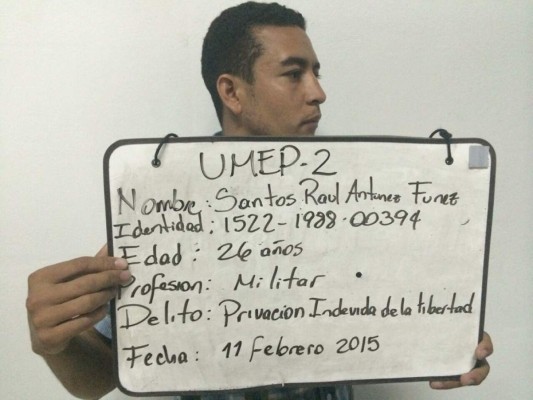 UMEP-2
Nombre: Santos Raul Antunez Funez
Identidad: 1522-1988-00394
Edad: 26 años
Profesion: Militar
Delito: Privacion Indevida de la libertad
Fecha: 11 febrero 2015